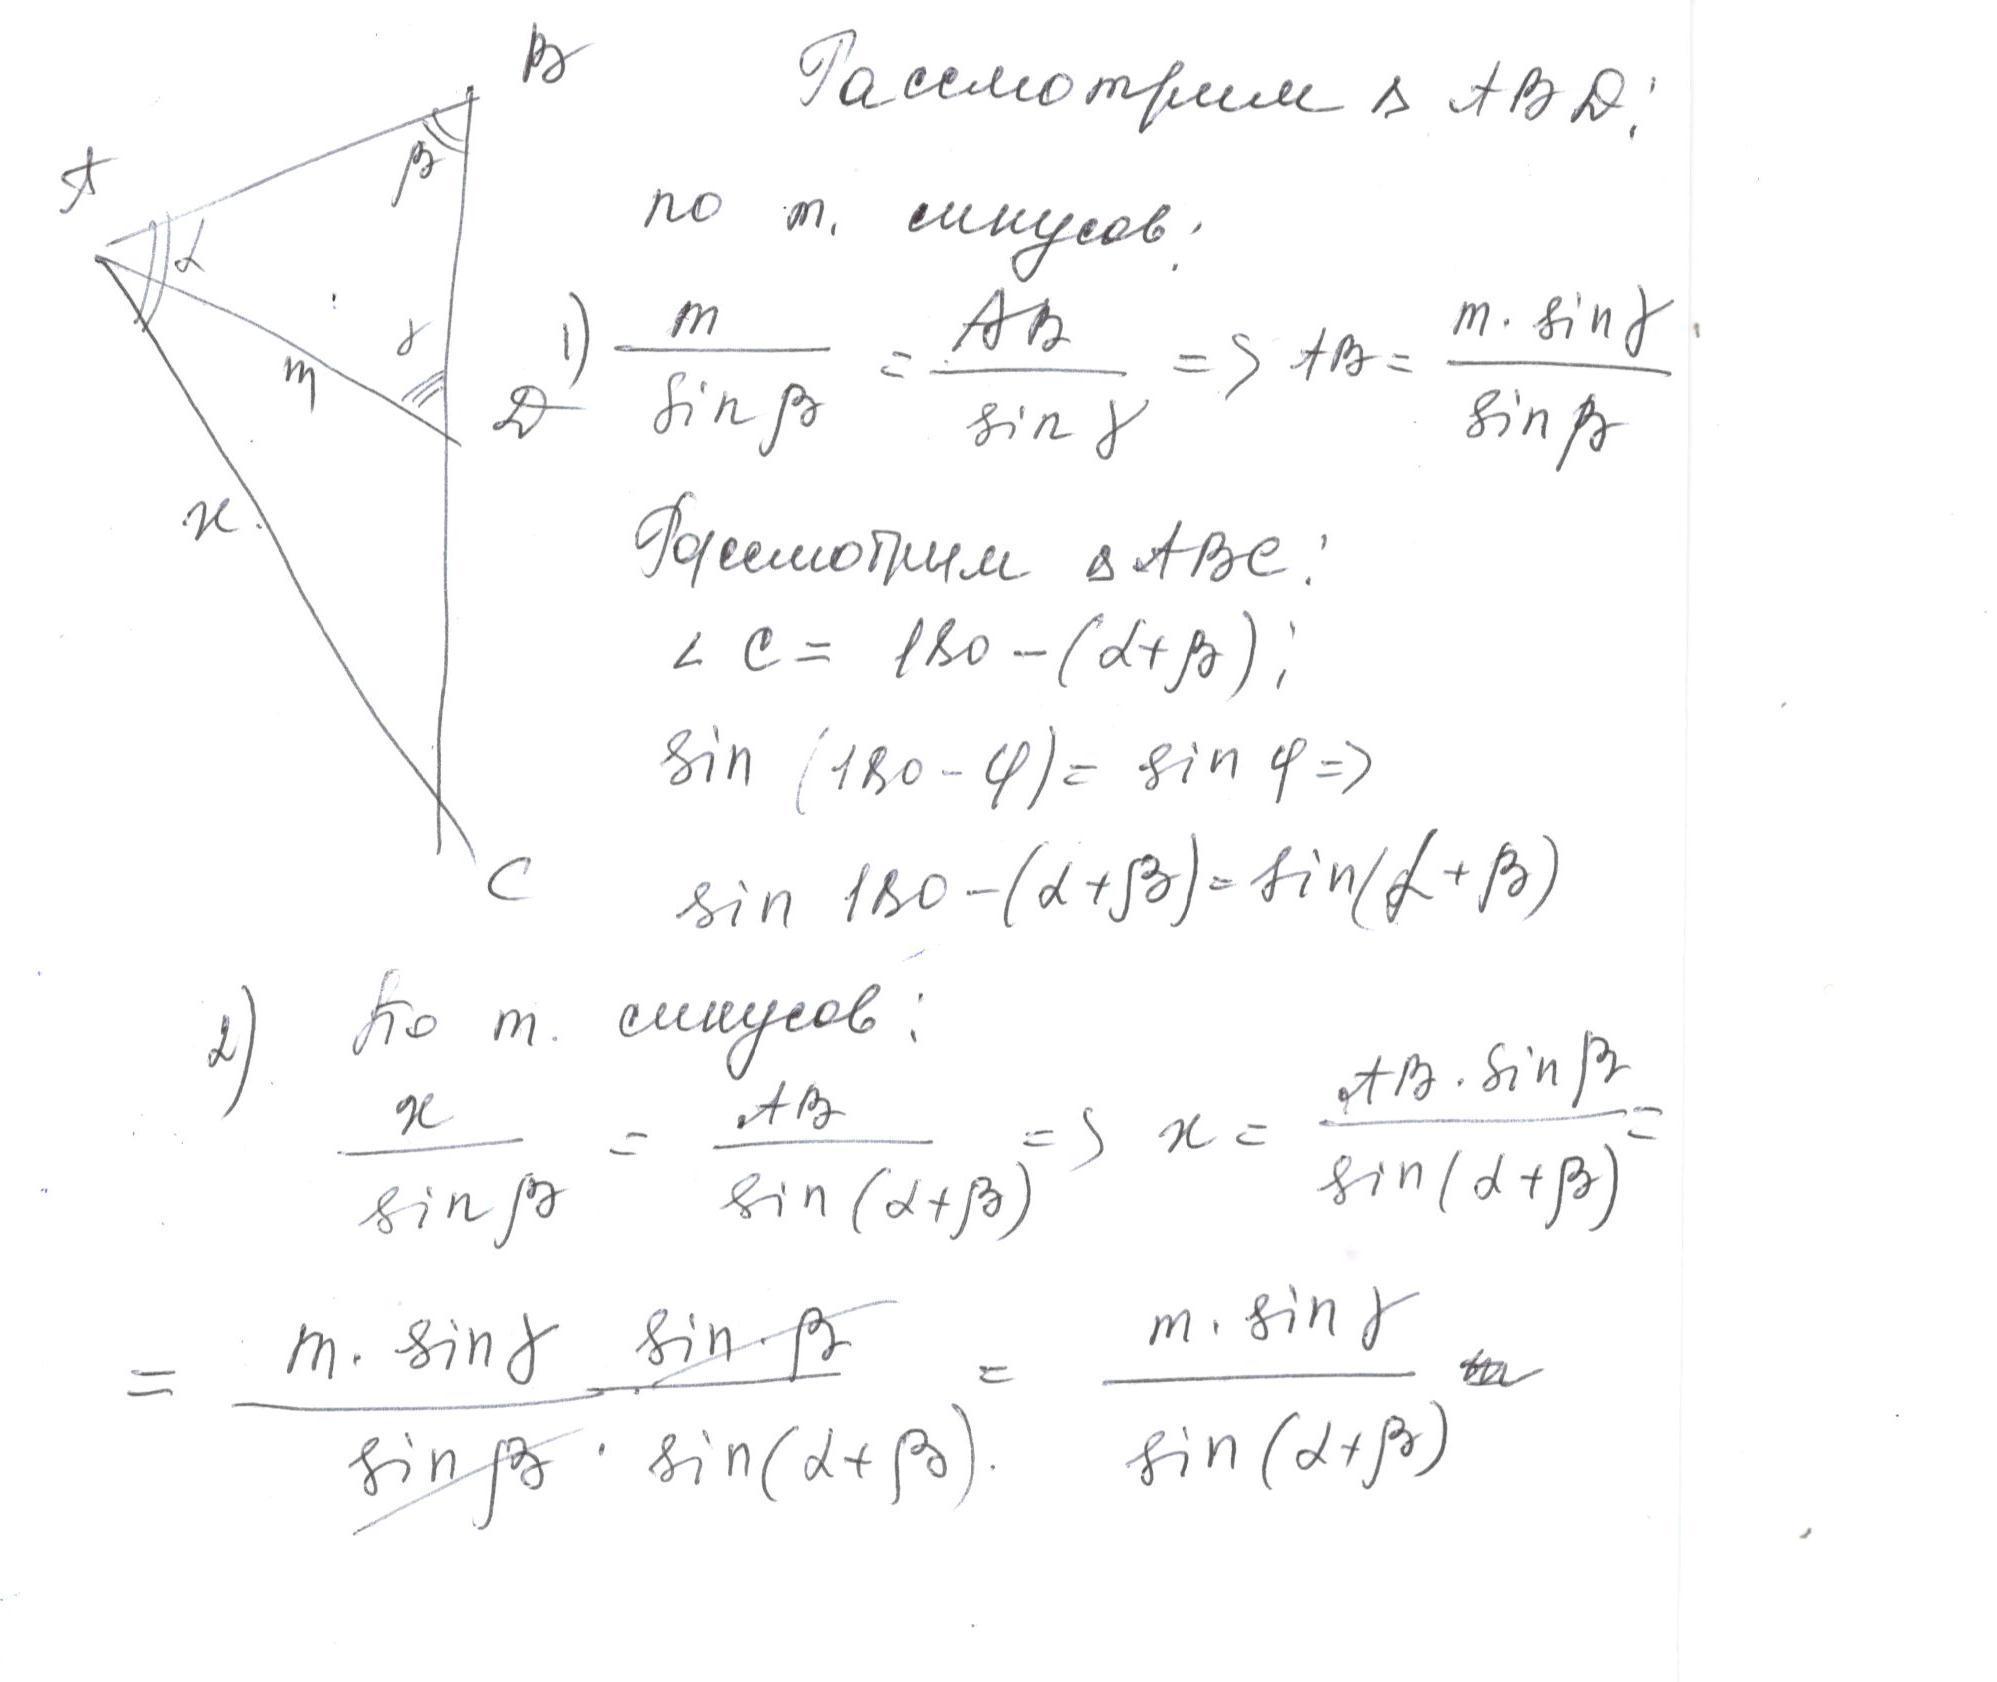 B
A
β
α
γ
m
D
x
C
Рассмотрим Δ ABD:
по т. синусов:
1) m / sin β = AB / sin γ => AB = m · sin γ / sin β
Рассмотрим Δ ABC:
∠ C = 180 - (α + β);
sin (180 - φ) = sin φ =>
sin 180 - (α + β) = sin (α + β)
2) По т. синусов:
x / sin β = AB / sin (α + β) => x = AB · sin β / sin (α + β) =
= m · sin γ sin · β / sin β · sin (α + β). = m · sin γ / sin (α + β)